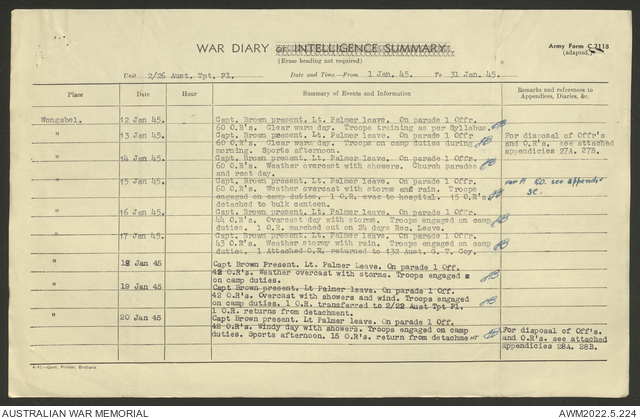 WAR DIARY or INTELLIGENCE SUMMARY.
(Erase heading not required)
Army Form C.2118
(adapted)
Unit 2/26 Aust. Tpt. Pl. Date and Time.—From 1 Jan. 45. To 31 Jan. 45.
Place Date Hour Summary of Events and Information Remarks and references to
Appendices, Diaries, &c.
Wongabel. 12 Jan 45. Capt. Brown present. Lt. Palmer leave. On parade 1 Offr.
60 O.R's. Clear warm day. Troops training as per Syllabus.
" 13 Jan 45. Capt. Brown present. Lt. Palmer leave. On parade 1 Offr
60 O.R's. Clear warm day. Troops on camp duties during
morning. Sports afternoon.
For disposal of Offr's
and O.R's. see attached
appendicies 27A. 27B.
" 14 Jan 45. Capt. Brown present. Lt. Palmer leave. On parade 1 Offr.
60 O.R's. Weather overcast with showers. Church parades
and rest day.
15 Jan 45. Capt. Brown present. Lt. Palmer leave. On parade 1 Offr.
60 O.R's. Weather overcast with storms and rain. Troops
engaged on camp duties. 1 O.R. evac to hospital. 15 O.R's
detached to bulk canteen.
For R O. see appendix
3c.
" 16 Jan 45. Capt. Brown present. Lt. Palmer leave. On parade 1 Offr.
44 O.R's. Overcast day with storms. Troops engaged on camp
duties. 1 O.R. marched out on 24 days Rec. Leave.
" 17 Jan 45. Capt. Brown present. Lt. Palmer leave. On parade 1 Offr.
43 O.R's. Weather stormy with rain. Troops engaged on camp
duties. 1 Attached O.R. returned to 132 Aust. G. T. Coy.
" 18 Jan 45 Capt Brown Present. Lt Palmer Leave. On parade 1 Off.
43 O.R's. Weather overcast with storms. Troops engaged
on camp duties.
" 19 Jan 45 Capt Brown present. Lt Palmer leave. On parade 1 Off.
42 O.R's. Overcast with showers and wind. Troops engaged
on camp duties. 1 O.R. transferred to 2/22 Aust Tpt Pl.
1 O.R. returns from detachment.
" 20 Jan 45 Capt Brown present. Lt Palmer leave. On parade 1 Off.
42 O.R's. Windy day with showers. Troops engaged on camp
duties. Sports afternoon. 15 O.R's. return from detachment
For disposal of Off's.
and O.R's. see attached
appendicies 28A. 28B.
Govt. Printer, Brisbane.
AUSTRALIAN WAR MEMORIAL
AWM2022.5.224